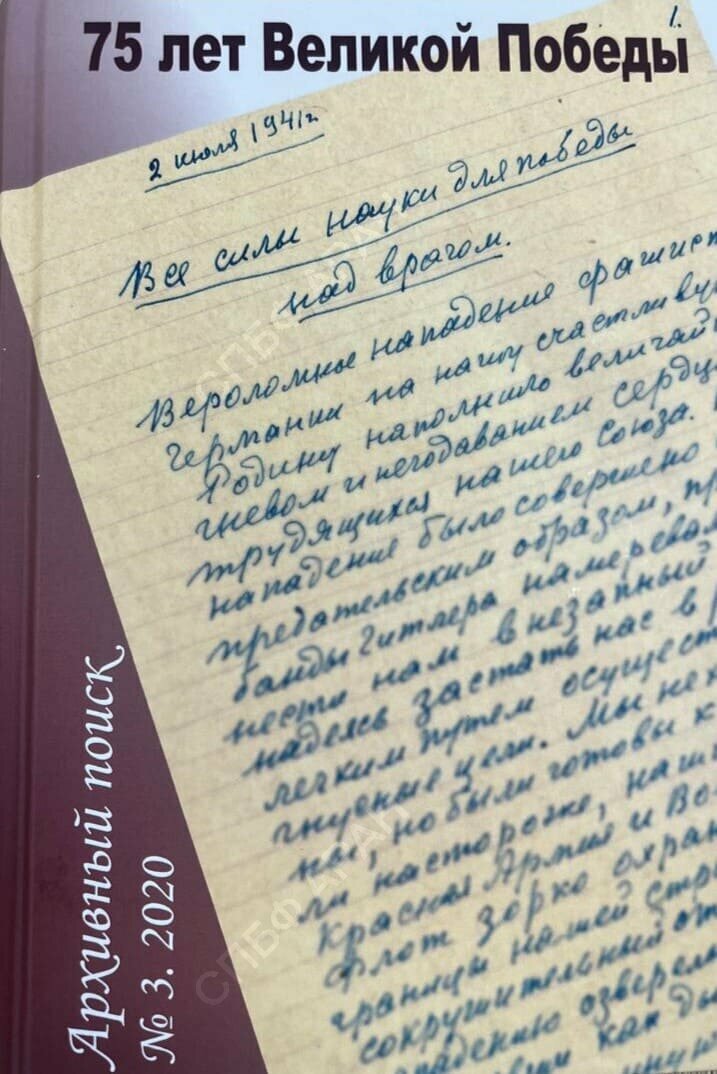 75 лет Великой Победы
1.
2 июля 1941 г.
Все силы науки для победы
над врагом.
Вероломное нападение фашист
Германии на нашу счастливую
Родину наполнило величай
гневом и негодованием сердца
трудящихся нашего Союза.
нападение было совершено
предательским образом, пр
банды Гитлера намерева
нести нам внезапный
надеясь застать нас в
легким путем осущест
гнусные цели. Мы не
на, но были готовы к
ли настороже, наш
Красная Армия и Во
Флот зорко охран
границы нашей стр
сокрушительный от
падению озверел
как ды
Архивный поиск
№ 3. 2020
СПБФ АРАН
СПБФ АРАН